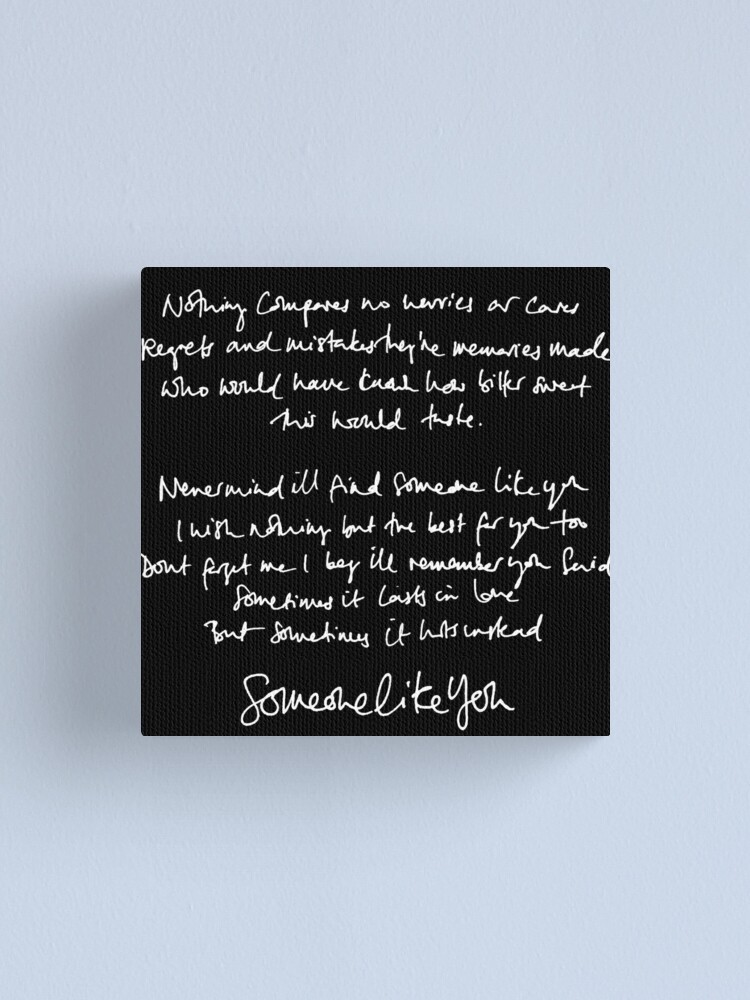 Nothing Compares no worries or cares
Regrets and mistakes they're memories made
who would have known how bitter sweet
this would taste.
Nevermind ill find someone like you
I wish nothing but the best for you too
Dont forget me I beg ill remember you Said
Sometimes it Lasts in love
But sometimes it hurts instead
Someone like you